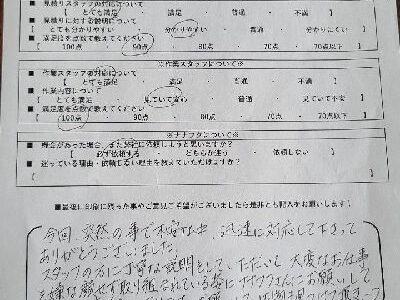 ■ 見積りスタッフの対応について
【 とても満足 ・ 満足 ・ 普通 ・ 不満 】
■ 見積りに対する説明について
【 とても分かりやすい ・ 分かりやすい ・ 普通 ・ 分かりにくい 】
■ 満足度を点数で教えてください
【 100点 ・ 90点 ・ 80点 ・ 70点 ・ 70点以下 】
※作業スタッフについて※
■ 作業スタッフの対応について
【 とても満足 ・ 満足 ・ 普通 ・ 不満 】
■ 作業内容について
【 とても満足 ・ 見ていて安心 ・ 普通 ・ 見ていて不安 】
■ 満足度を点数で教えてください
【 100点 ・ 90点 ・ 80点 ・ 70点 ・ 70点以下 】
※ナナフクについて※
■ 機会があった場合、また弊社に依頼しようと思いますか?
【 必ず依頼する ・ どちらか迷う ・ 依頼しない 】
■ 迷っている理由・依頼しない理由を教えていただけますか?
【 】
■最後に印象に残った事やご意見ご希望がございましたら是非とも記入をお願いします
今回、突然の事で不安な中、迅速に対応して下さって
ありがとうございました。
スタッフの方に丁寧な説明をしていただいて 大変なお仕事
を嫌な顔せず取り組されている姿に ナナフクさんにお願いして